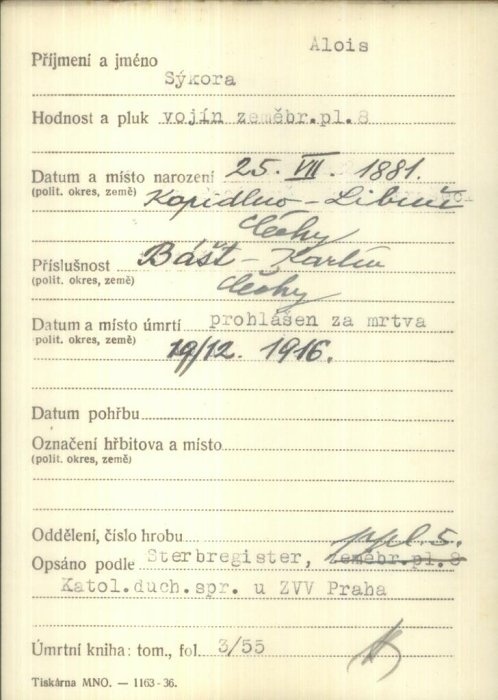 Alois
Příjmení a jméno
Sýkora
Hodnost a pluk vojín zeměbr.pl.8
Datum a místo narození 25. VII. 1881.
(polit. okres, země) Kopidlno - Libuň
Čechy
Příslušnost Bášť - Karlín
(polit. okres, země) Čechy
Datum a místo úmrtí prohlášen za mrtva
polit. okres, země) 19/12. 1916.
Datum pohřbu
Označení hřbitova a místo
(polit. okres, země)
Oddělení, číslo hrobu ppl. 5.
Opsáno podle Sterbregister, zeměbr.pl.8
Katol.duch.spr. u ZVV Praha
Úmrtní kniha: tom., fol. 3/55
Tiskárna MNO. — 1163-36.